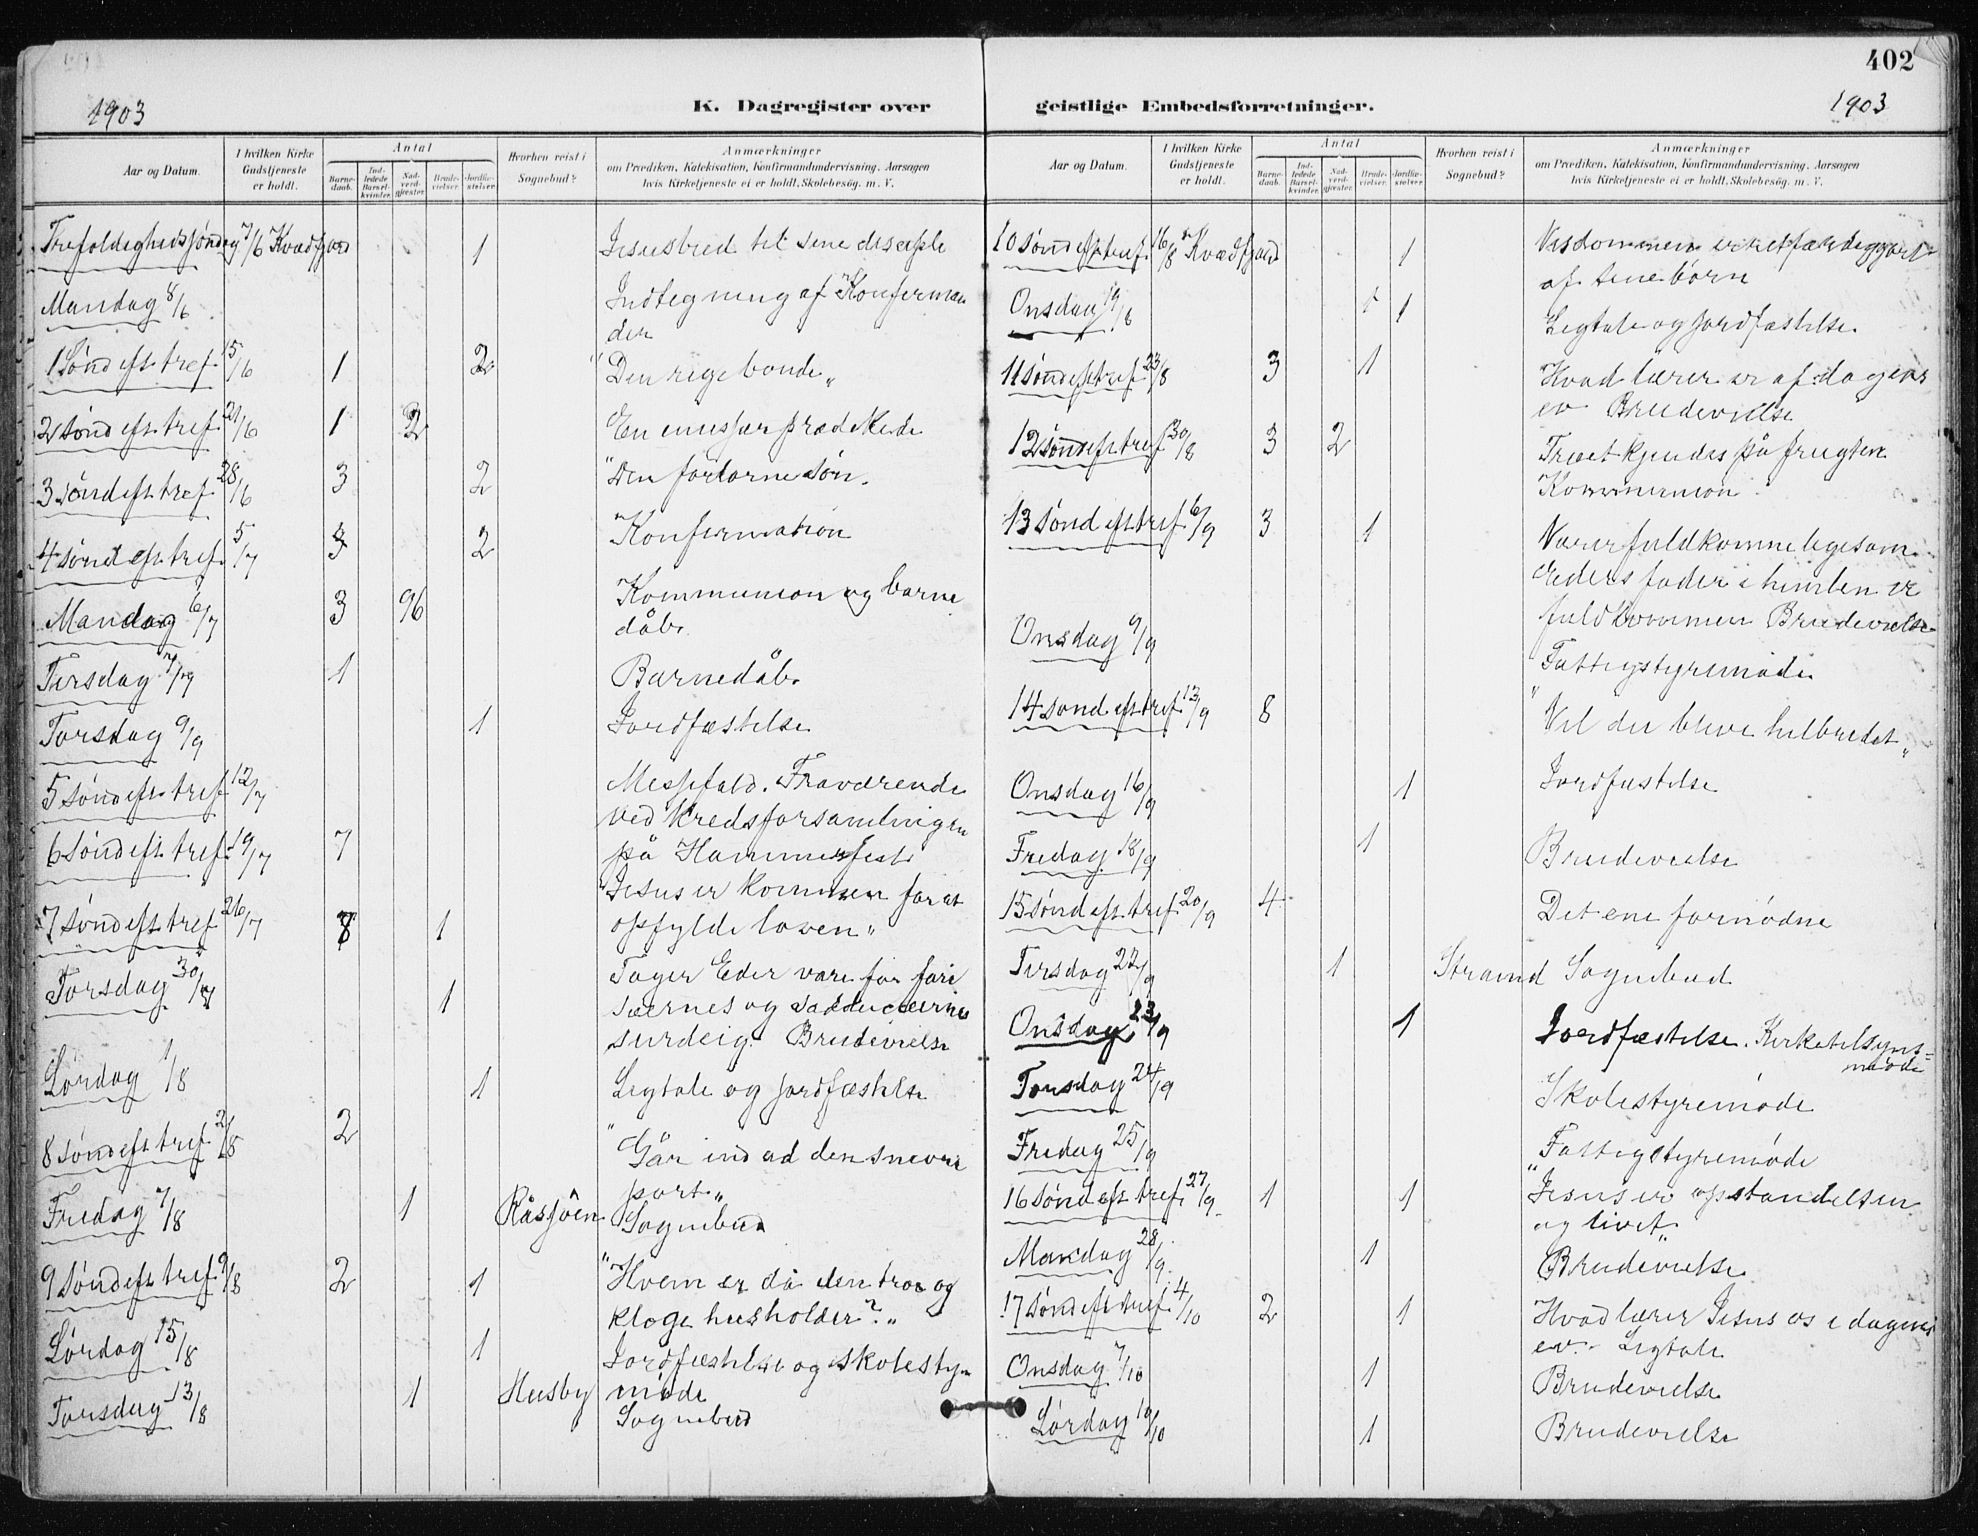 402
1903
K. Dagregister over
geistlige Embedsforretninger.
1903
Aar og Datum.
I hvilken Kirke Gudstjeneste er holdt.
Antal
Barne-daab.
Ind-ledede Barsel-kvinder.
Nad-verd-gjæster.
Brude-vielser.
Jordfæ-stelser.
Hvorhen reist i Sognebud?
Anmærkninger
om Prædiken, Katekisation, Konfirmandundervisning, Aarsagen
hvis Kirketjeneste ei er holdt, Skolebesøg, m. V.
Trefoldighedssøndag 7/6 Kvædfjord 1 Jesusbud til sine disciple
Mandag 8/6 Indtegning af Konfirman
der
1 Sønd eft tref 15/6 1 2 "Den rige bonde"
2 Sønd eft tref 21/6 1 2 En emissær prædikede
3 sønd eft tref 28/6 3 2 "Den fortorne søn.
4 sønd eft tref 5/7 3 2 "Konfirmation
Mandag 6/7 3 96 Kommunion og barne
dåb.
Tirsdag 7/7 1 Barnedåb.
Torsdag 9/9 1 Jordfæstelse
5 sønd eft tref 12/7 Messefald. Fraværende
ved Kredsforsamlingen
på Hammerfest
6 sønd eft tref 19/7 7 "Jesus er kommen for at
opfylde loven"
7 sønd eft tref 26/7 8 1 Tager Eder vare for fari
sæernes og sadducæernes
surdeig. Brudevielse
Torsdag 30/7 1
Lørdag 1/8 1 Ligtale og jordfæstelse
8 sønd eft tref 2/8 2 "Går ind ad den snevre
port"
Fredag 7/8 1 Råsjøen Sognebud
9 sønd eft tref 9/8 2 1 "Hvem er då den tro og
kloge husholder?"
Lørdag 15/8 1 Jordfæstelse og skolesty-
møde
Torsdag 13/8 1 Husby Sognebud
Aar og Datum.
I hvilken Kirke Gudstjeneste er holdt.
Antal
Barne-daab.
Ind-ledede Barsel-kvinder.
Nad-verd-gjæster.
Brude-vielser.
Jordfæ-stelser.
Hvorhen reist i Sognebud?
Anmærkninger
om Prædiken, Katekisation, Konfirmandundervisning, Aarsagen
hvis Kirketjeneste ei er holdt, Skolebesøg m. V.
10 sønd eft tref 16/8 Kvædfjord 1 Visdommen er retfærdiggjort
af sine børn
Onsdag 19/8 1 Ligtale og jordfæstelse
11 sønd eft tref 23/8 3 1 Hvad lærer vi af dagens
ev Brudevielse
12 sønd eft tref 30/8 3 2 Træet kjendes på frugten
Kommunion
13 sønd eft tref 6/9 3 1 Værer fuldkomne ligesom
Eders fader i himlen er
fuldkommen Brudevielse
Onsdag 9/9 Fattigstyremøde
14 sønd eft tref 13/9 8 "Vil du blive helbredet"
Onsdag 16/9 1 Jordfæstelse
Fredag 18/9 1 Brudevielse
15 sønd eft tref 20/9 4 Det ene fornødne
Tirsdag 22/9 1 Strand Sognebud
Onsdag 23/9 1 Jordfæstelse. Kirketilsyns-
møde
Torsdag 24/9 Skolestyremøde
Fredag 25/9 Fattigstyremøde
16 sønd eft tref 27/9 1 1 "Jesus er opstandelsen
og livet"
Mandag 28/9 1 Brudevielse
17 sønd eft tref 4/10 2 1 Hvad lærer Jesus os i dagens
ev. Ligtale
Onsdag 7/10 1 Brudevielse
Lørdag 10/10 1 Brudevielse